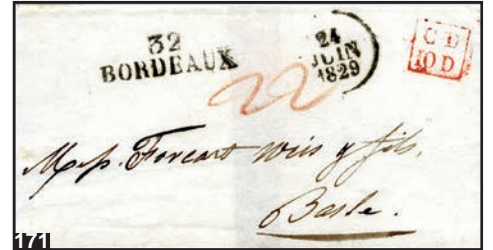 32
BORDEAUX
24
JUIN
1829
C D
10 D
22
Mess. Forcart Weis & fils.
Basle.
171